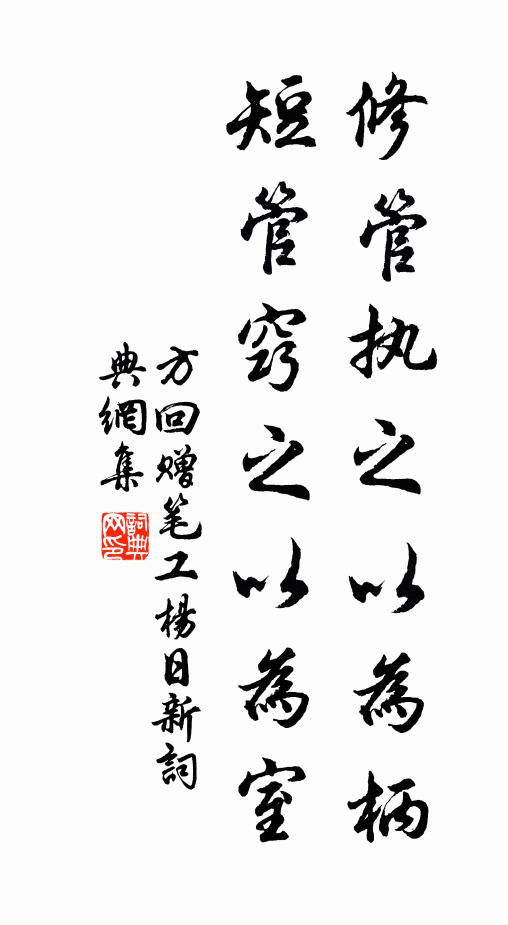 修管执之以為柄
短管窍之以為室
方回赠笔工楊日新詞
典網集
詞典
网印